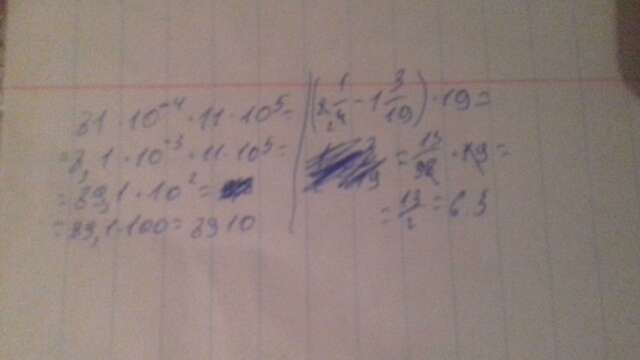 81 · 10^-4 · 11 · 10^5 =
= 8,1 · 10^-3 · 11 · 10^5 =
= 89,1 · 10^2 =
= 89,1 · 100 = 8910
( - 1 3/19) · 19 =
= 13/38 · 19 =
= 13/2 = 6.5